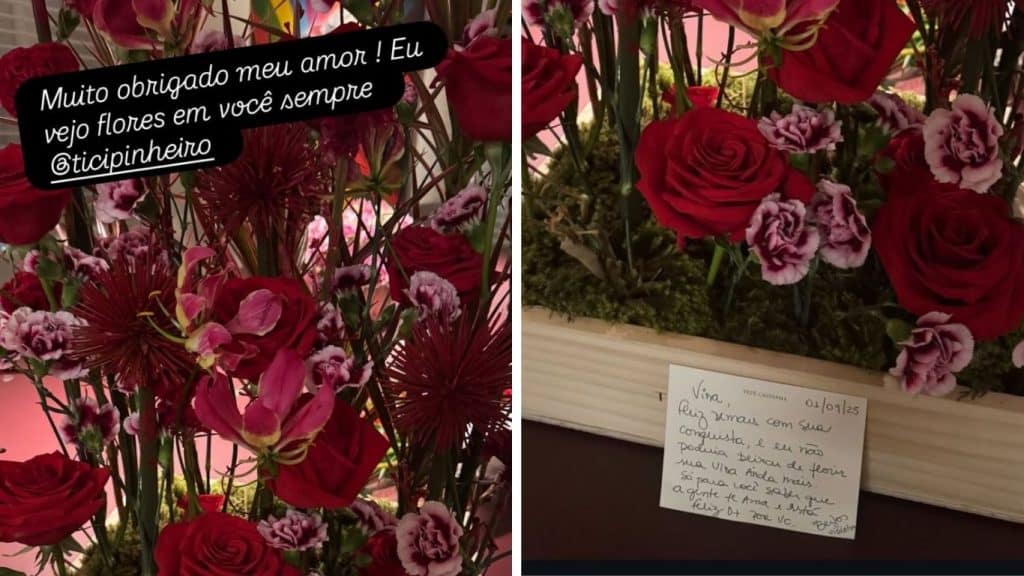 Muito obrigado meu amor ! Eu
vejo flores em você sempre
@ticipinheiro
01/09/25
feliz demais com sua
conquista, e eu não
poderia deixar de florir
sua vida ainda mais
só para você saber que
a gente te ama e está
feliz D+ por vc